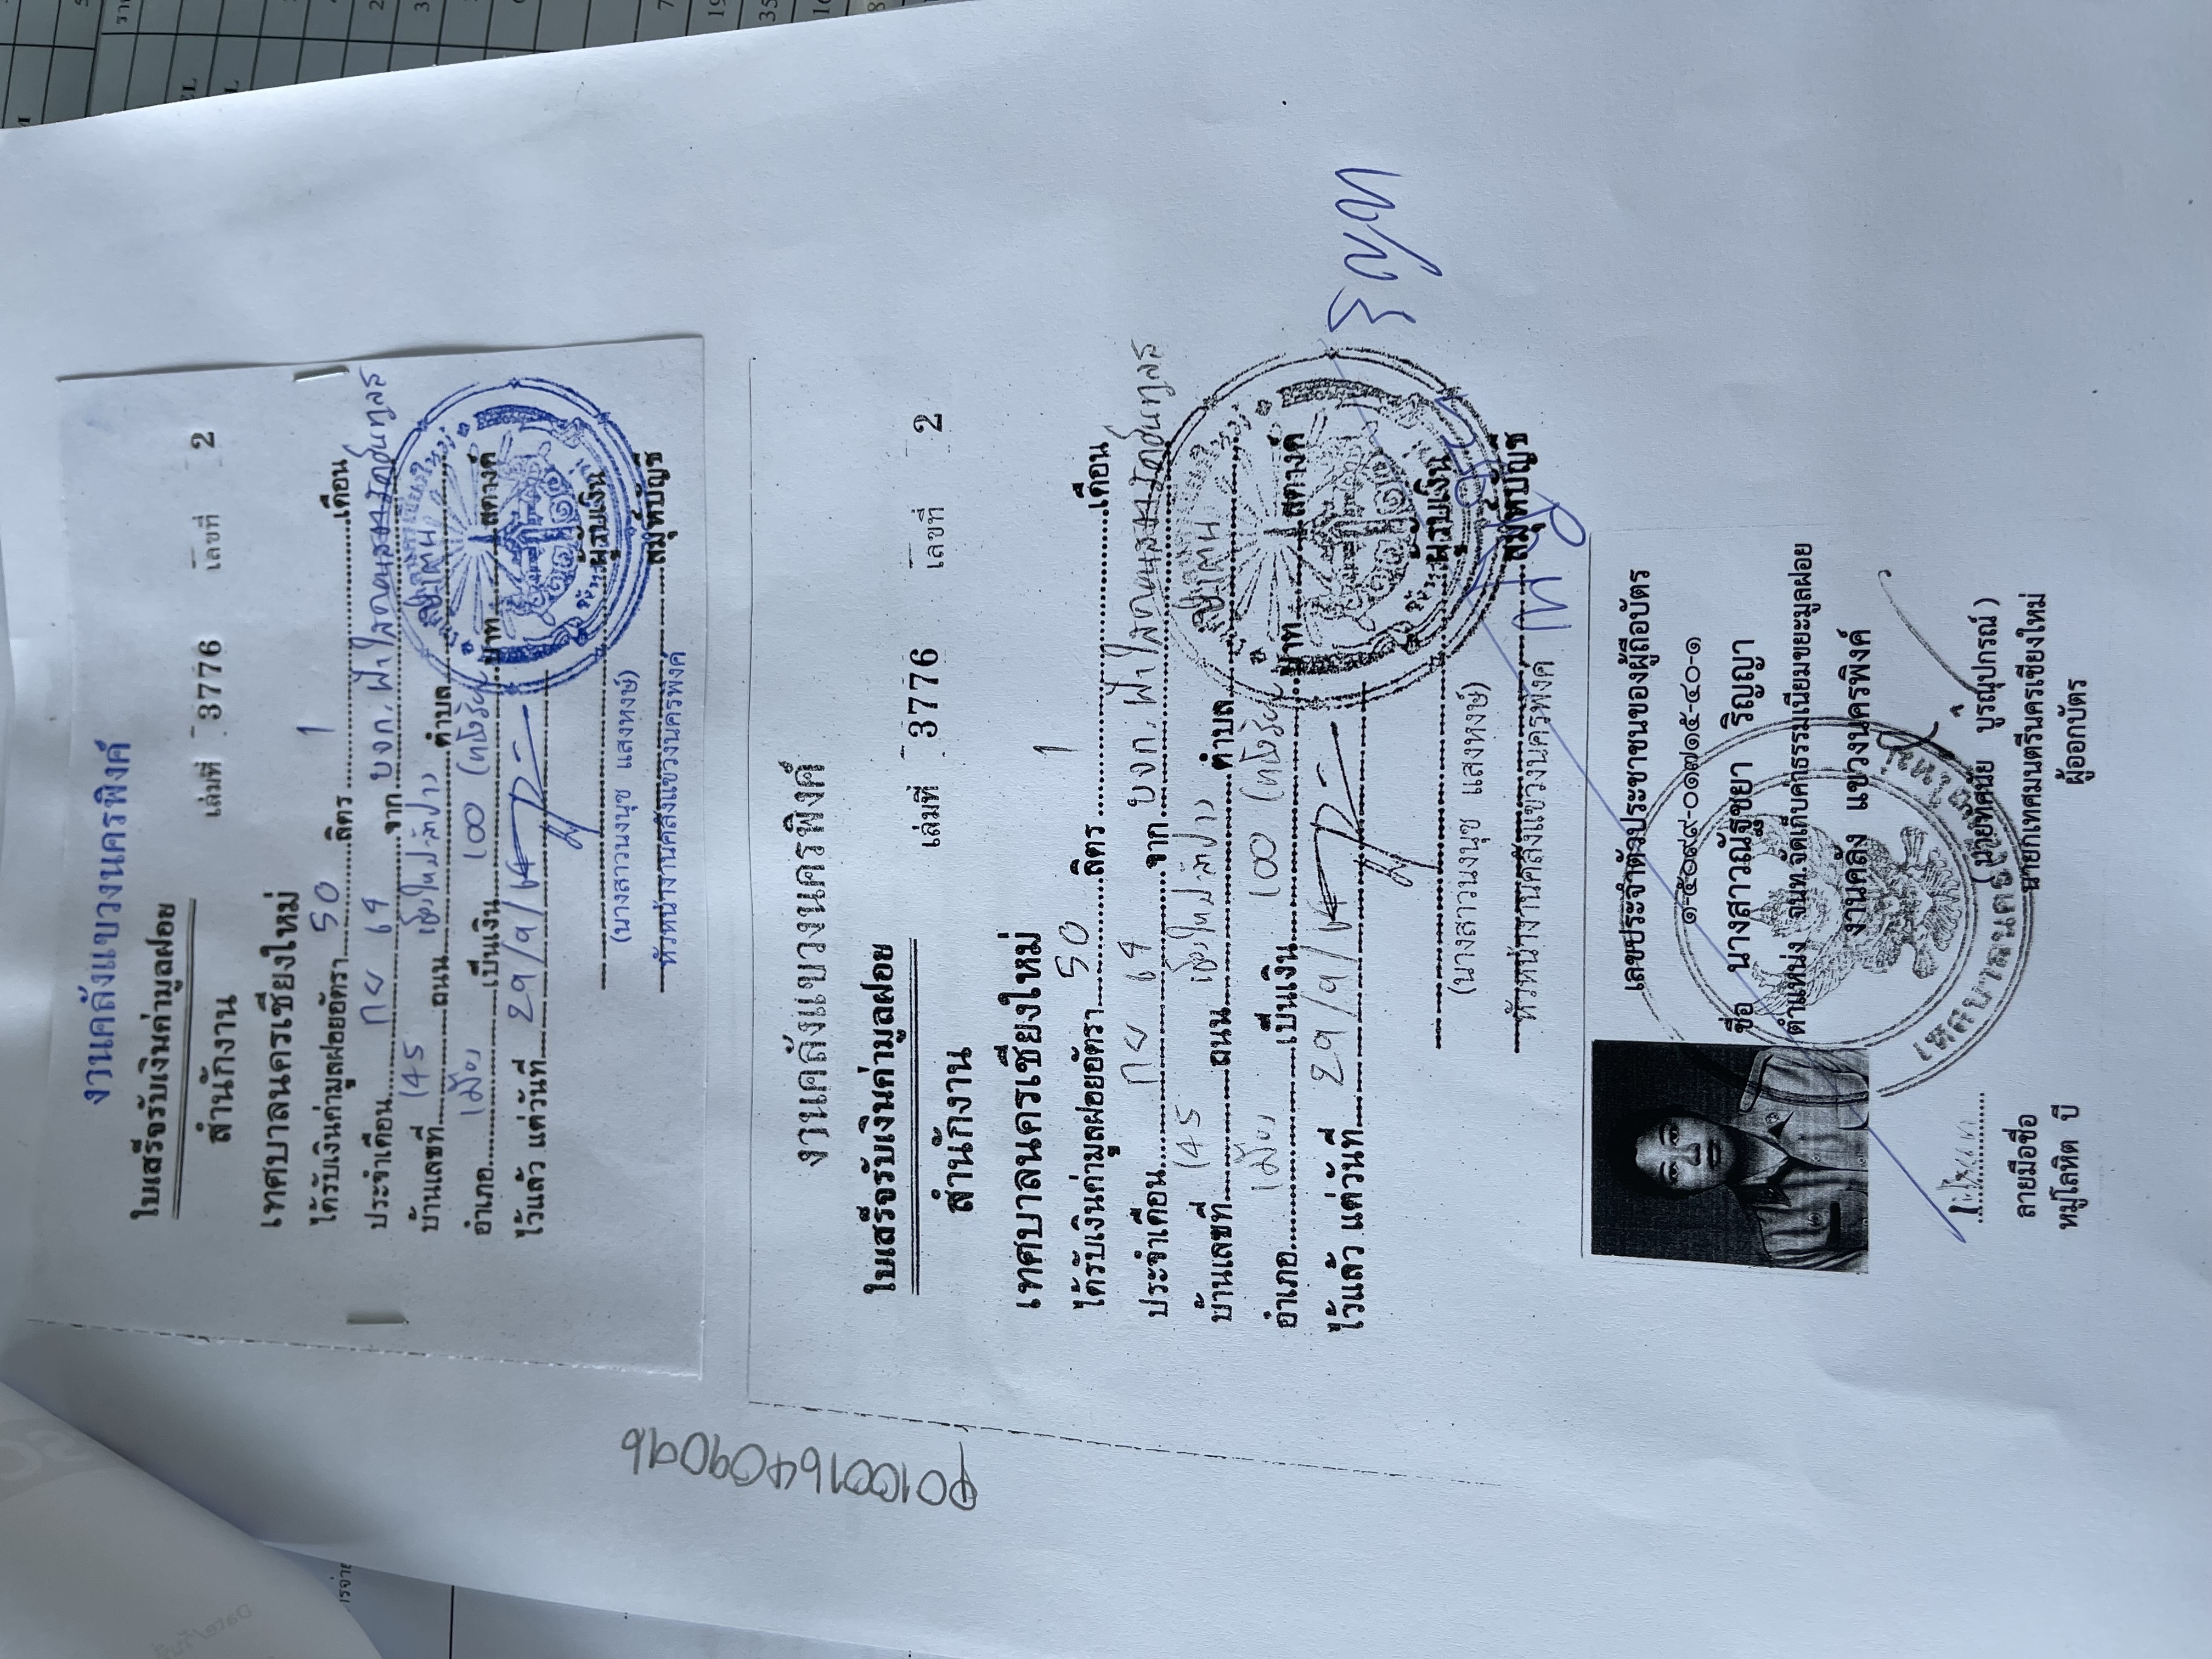 งานคลังแขวงนครพิงค์
ใบเสร็จรับเงินค่ามูลฝอย
สำนักงาน
เล่มที่ 3776 เลขที่ 2
เทศบาลนครเชียงใหม่
ได้รับเงินค่ามูลฝอยอัตรา 50 ลิตร 1 เดือน
ประจำเดือน กย 64 จาก บจก. ฟ้าใส
บ้านเลขที่ 145 ถนน เชียงใหม่-ลำปาง ตำบล ป่าตัน
อำเภอ เมือง เป็นเงิน 100 บาท สตางค์
ไว้แล้ว แต่วันที่ 29/9/64
ผู้รับเงิน
(นางสาวนงนุช แสงหงษ์)
สมุห์บัญชี
หัวหน้างานคลังแขวงนครพิงค์
PO10016409096
งานคลังแขวงนครพิงค์
ใบเสร็จรับเงินค่ามูลฝอย
สำนักงาน
เล่มที่ 3776 เลขที่ 2
เทศบาลนครเชียงใหม่
ได้รับเงินค่ามูลฝอยอัตรา 50 ลิตร 1 เดือน
ประจำเดือน กย 64 จาก บจก. ฟ้าใส
บ้านเลขที่ 145 ถนน เชียงใหม่-ลำปาง ตำบล ป่าตัน
อำเภอ เมือง เป็นเงิน 100 บาท สตางค์
ไว้แล้ว แต่วันที่ 29/9/64
ผู้รับเงิน
(นางสาวนงนุช แสงหงษ์)
สมุห์บัญชี
หัวหน้างานคลังแขวงนครพิงค์
เลขประจำตัวประชาชนของผู้ถือบัตร
๑-๕๐๙๙-๐๑๗๑๕-๔๐-๑
ชื่อ นางสาวณัฐชยา ริญญา
ตำแหน่ง จนท.จัดเก็บค่าธรรมเนียมขยะมูลฝอย
งานคลัง แขวงนครพิงค์
เทศบาลนครเชียงใหม่
(นายทัศนัย บูรณุปกรณ์)
ลายมือชื่อ
นายกเทศมนตรีนครเชียงใหม่
หมู่โลหิต บี
ผู้ออกบัตร